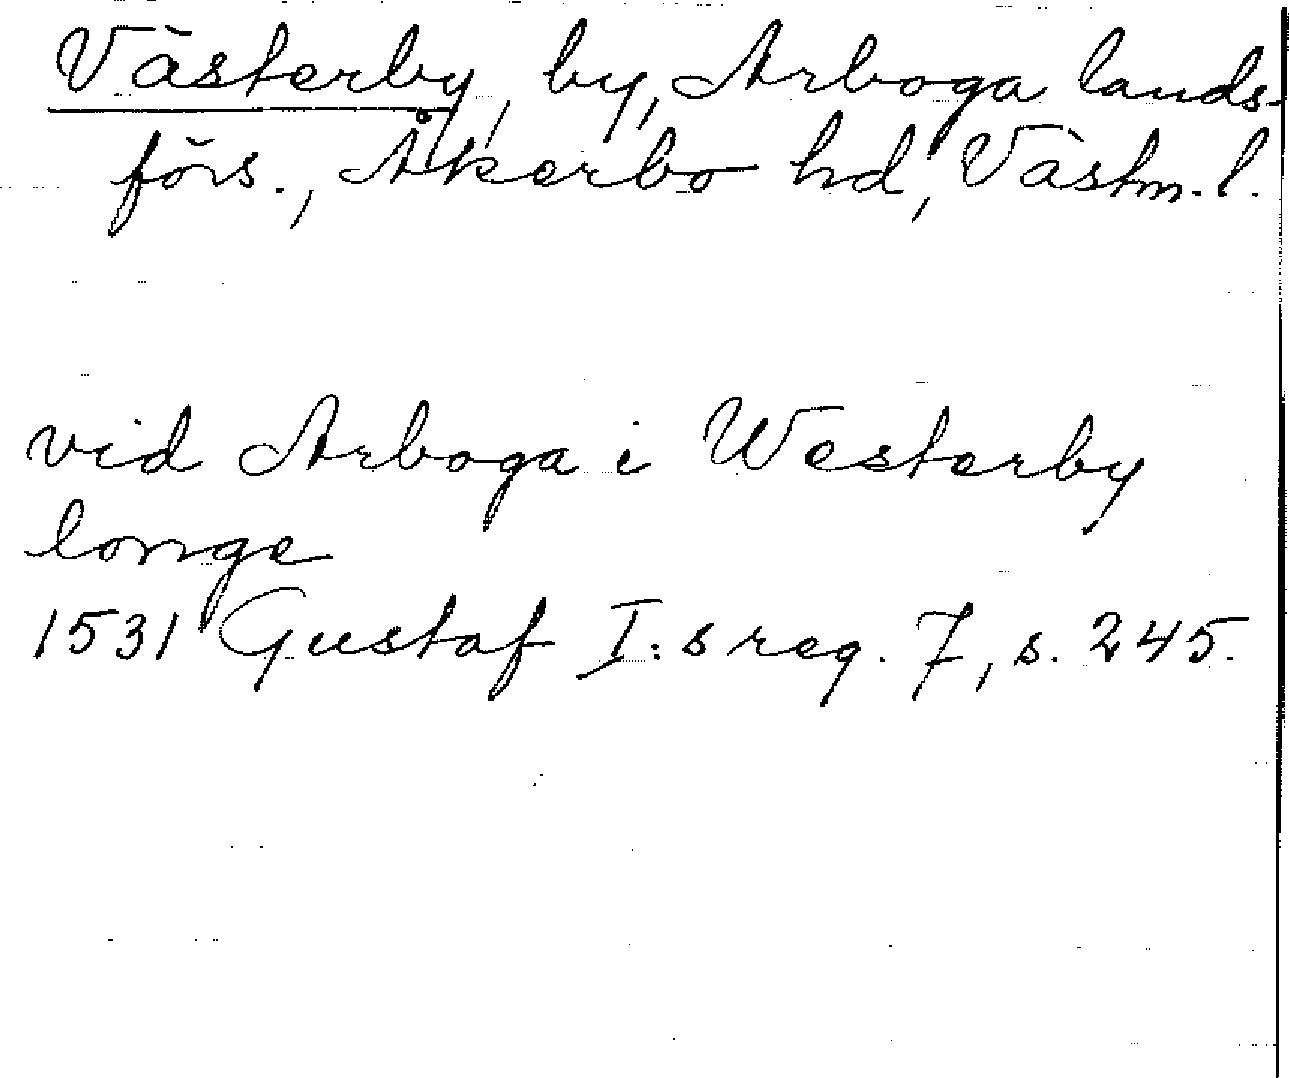 Västerby, by, Arboga lands-
förs., Åkerbo hd, Västm. l.
vid Arboga i Westerby
longe
1531 Gustaf I:s reg. 7, s. 245.